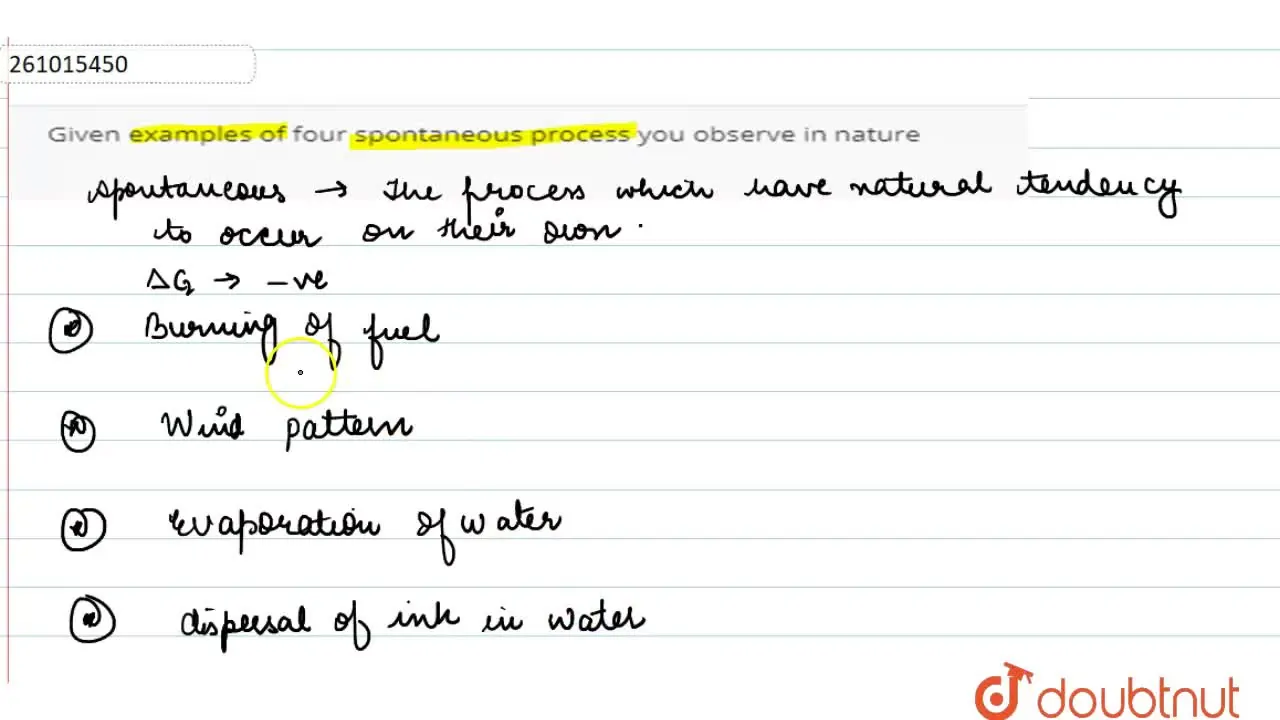 261015450
Given examples of four spontaneous process you observe in nature
spontaneous → The process which have natural tendency
to occur on their own.
ΔG → -ve
Burning of fuel
Wind pattern
Evaporation of water
dispersal of ink in water
doubtnut